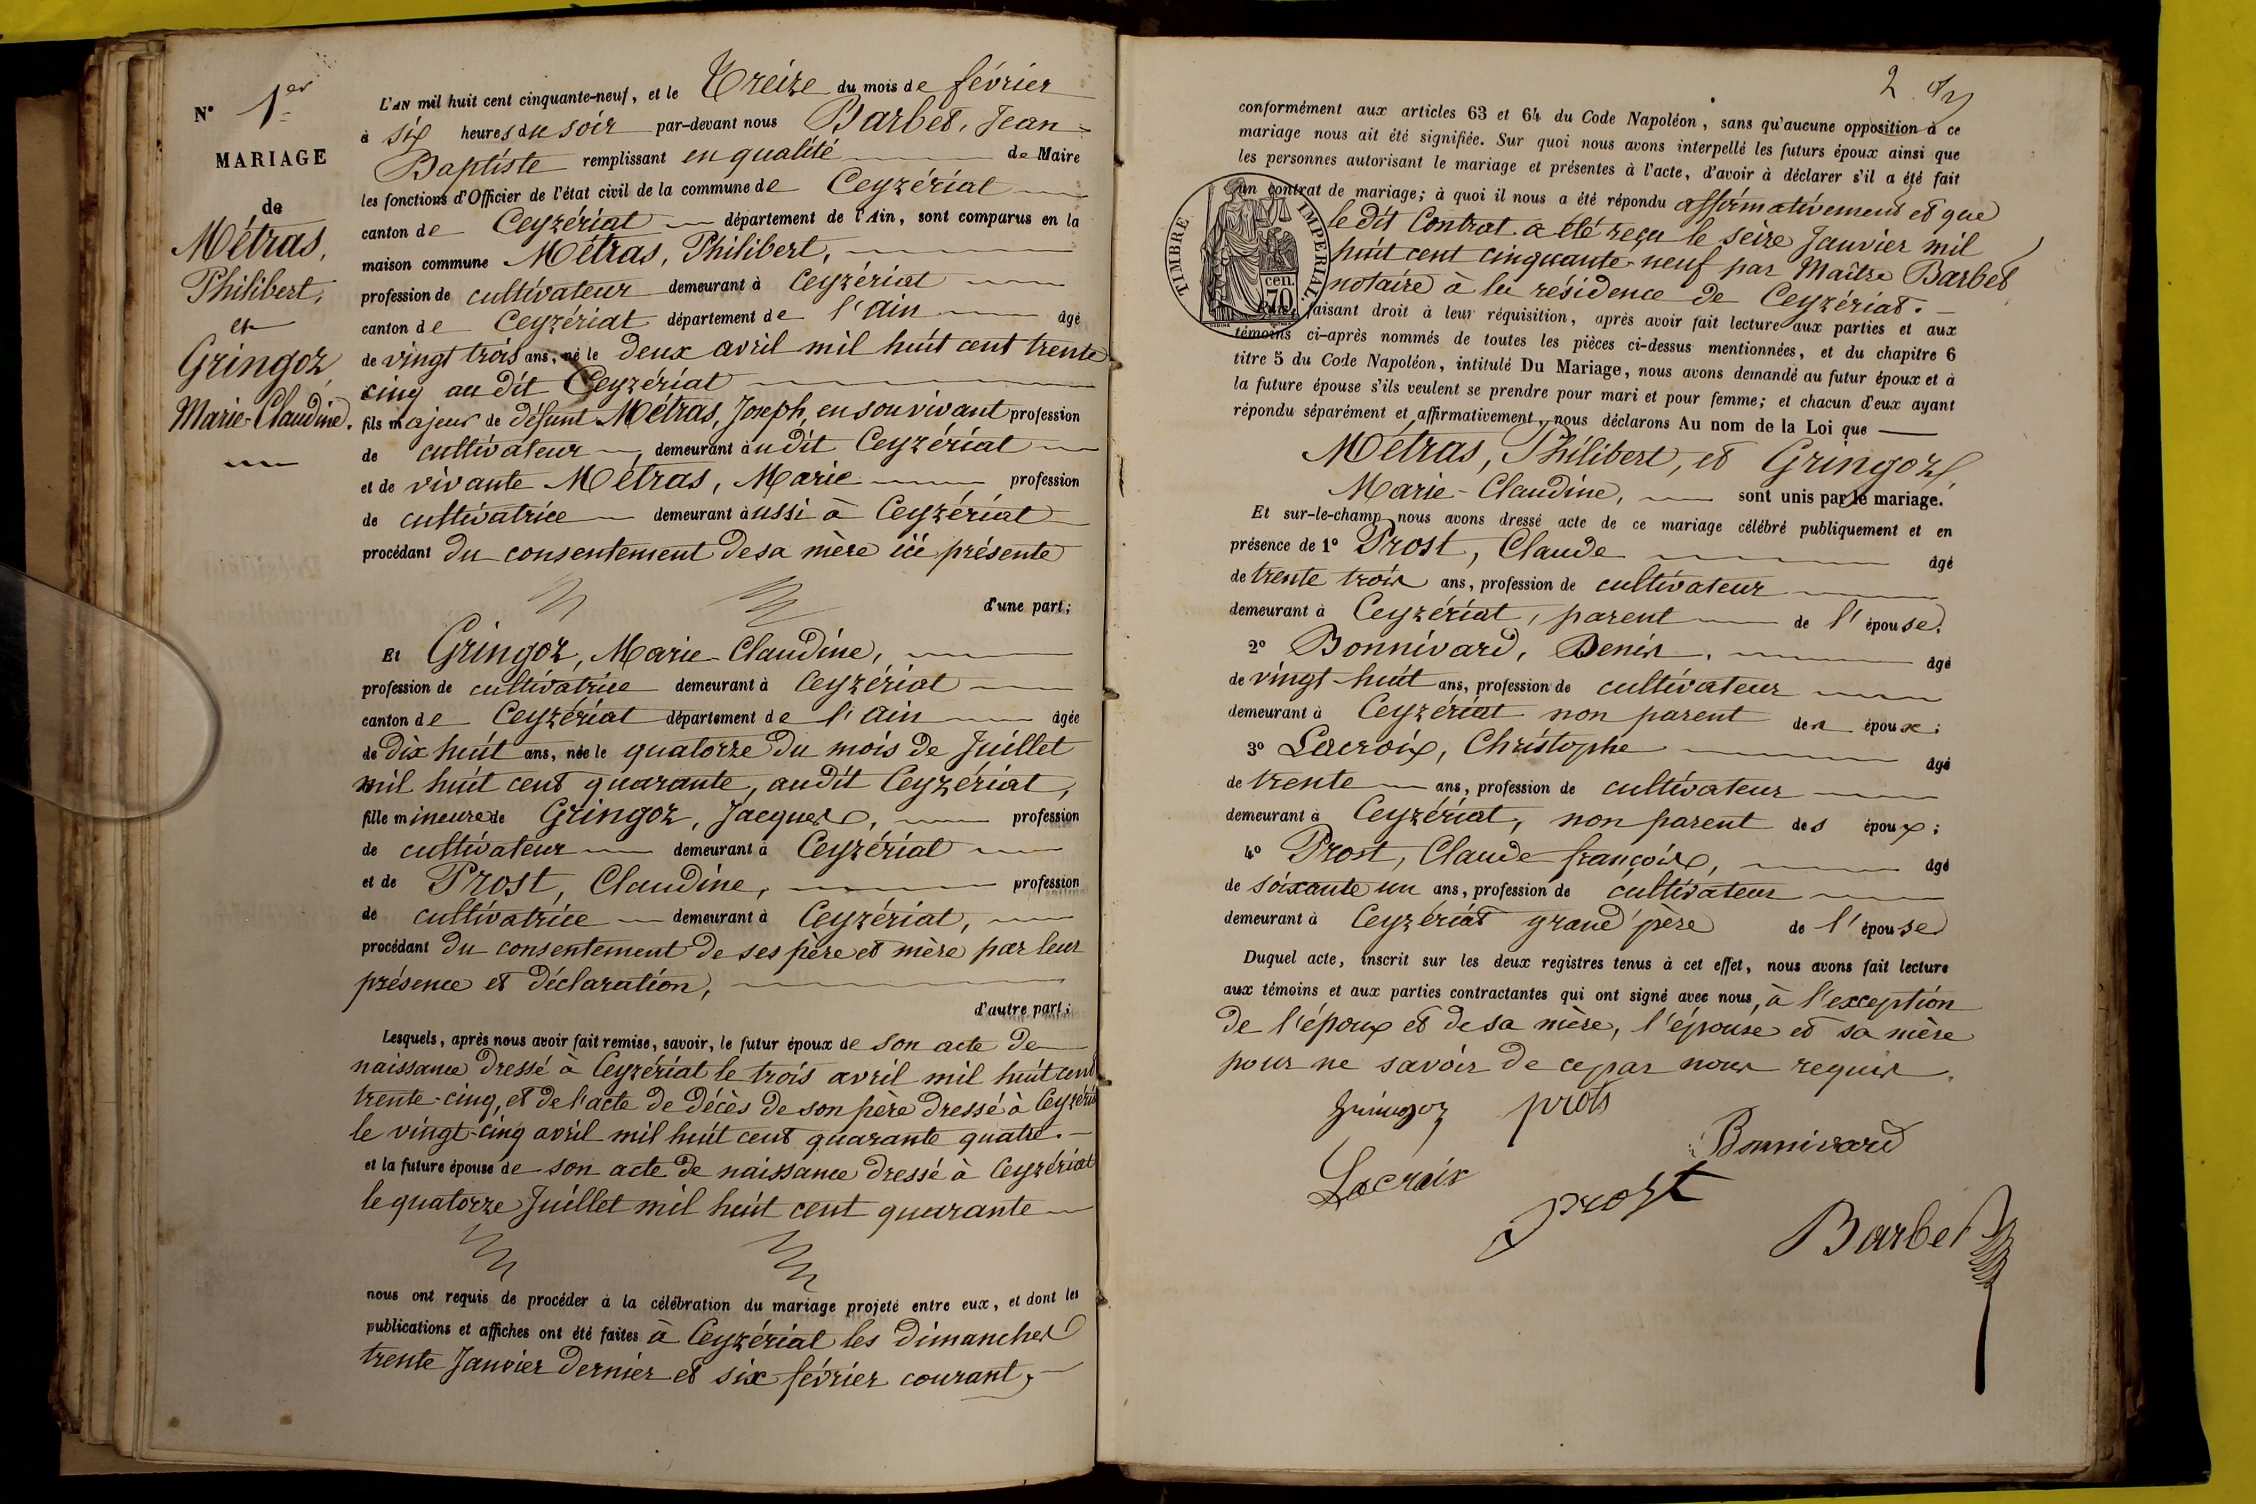 N° 1er
MARIAGE
de
Métras,
Philibert,
et
Gringoz
Marie-Claudine.
L'AN mil huit cent cinquante-neuf, et le Treize du mois de février
à six heures du soir par-devant nous Barbet, Jean-
Baptiste remplissant en qualité de Maire
les fonctions d'Officier de l'état civil de la commune de Ceyzériat
canton de Ceyzériat département de l'Ain, sont comparus en la
maison commune Métras, Philibert,
profession de cultivateur demeurant à Ceyzériat
canton de Ceyzériat département de l'Ain âgé
de vingt trois ans, né le deux avril mil huit cent trente
cinq au dit Ceyzériat
fils majeur de défunt Métras, Joseph, en son vivant profession
de cultivateur, demeurant audit Ceyzériat
et de vivante Métras, Marie profession
de cultivatrice demeurant aussi à Ceyzériat
procédant du consentement de sa mère ici présente
d'une part;
Et Gringoz, Marie-Claudine,
profession de cultivatrice demeurant à Ceyzériat
canton de Ceyzériat département de l'Ain âgée
de dix huit ans, née le quatorze du mois de Juillet
mil huit cent quarante, audit Ceyzériat,
fille mineure de Gringoz, Jacques, profession
de cultivateur demeurant à Ceyzériat
et de Prost, Claudine, profession
de cultivatrice demeurant à Ceyzériat,
procédant du consentement de ses père et mère par leur
présence et déclaration,
d'autre part;
Lesquels, après nous avoir fait remise, savoir, le futur époux de son acte de
naissance dressé à Ceyzériat le trois avril mil huit cent
trente-cinq, et de l'acte de décès de son père dressé à Ceyzériat
le vingt-cinq avril mil huit cent quarante quatre.
et la future épouse de son acte de naissance dressé à Ceyzériat
le quatorze Juillet mil huit cent quarante
nous ont requis de procéder à la célébration du mariage projeté entre eux, et dont les
publications et affiches ont été faites à Ceyzériat les dimanches
trente Janvier dernier et six février courant,
2
conformément aux articles 63 et 64 du Code Napoléon, sans qu'aucune opposition à ce
mariage nous ait été signifiée. Sur quoi nous avons interpellé les futurs époux ainsi que
les personnes autorisant le mariage et présentes à l'acte, d'avoir à déclarer s'il a été fait
un contrat de mariage; à quoi il nous a été répondu affirmativement et que
le dit Contrat a été reçu le seize Janvier mil
huit cent cinquante-neuf par Maître Barbet
notaire à la résidence de Ceyzériat.
TIMBRE IMPERIAL.
70 cen.
faisant droit à leur réquisition, après avoir fait lecture aux parties et aux
témoins ci-après nommés de toutes les pièces ci-dessus mentionnées, et du chapitre 6
titre 5 du Code Napoléon, intitulé Du Mariage, nous avons demandé au futur époux et à
la future épouse s'ils veulent se prendre pour mari et pour femme; et chacun d'eux ayant
répondu séparément et affirmativement, nous déclarons Au nom de la Loi que
Métras, Philibert, et Gringoz,
Marie-Claudine, sont unis par le mariage.
Et sur-le-champ nous avons dressé acte de ce mariage célébré publiquement et en
présence de 1° Prost, Claude âgé
de trente trois ans, profession de cultivateur
demeurant à Ceyzériat, parent de l'épouse.
2° Bonnivard, Denis. âgé
de vingt-huit ans, profession de cultivateur
demeurant à Ceyzériat non parent des époux;
3° Lacroix, Christophe âgé
de trente ans, profession de cultivateur
demeurant à Ceyzériat, non parent des époux;
4° Prost, Claude françois, âgé
de soixante un ans, profession de cultivateur
demeurant à Ceyzériat grand'père de l'épouse
Duquel acte, inscrit sur les deux registres tenus à cet effet, nous avons fait lecture
aux témoins et aux parties contractantes qui ont signé avec nous, à l'exception
de l'époux et de sa mère, l'épouse et sa mère
pour ne savoir de ce par nous requis.
Gringoz prots
Bonnivard
Lacroix
prost
Barbet